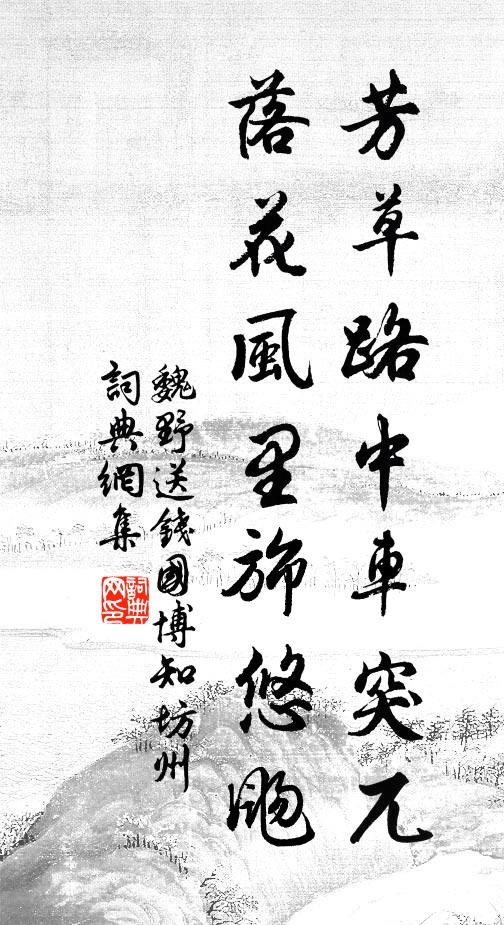 芳草路中車突兀
落花風里旆悠颺
魏野送錢國博知坊州
詞典網集
詞典網印